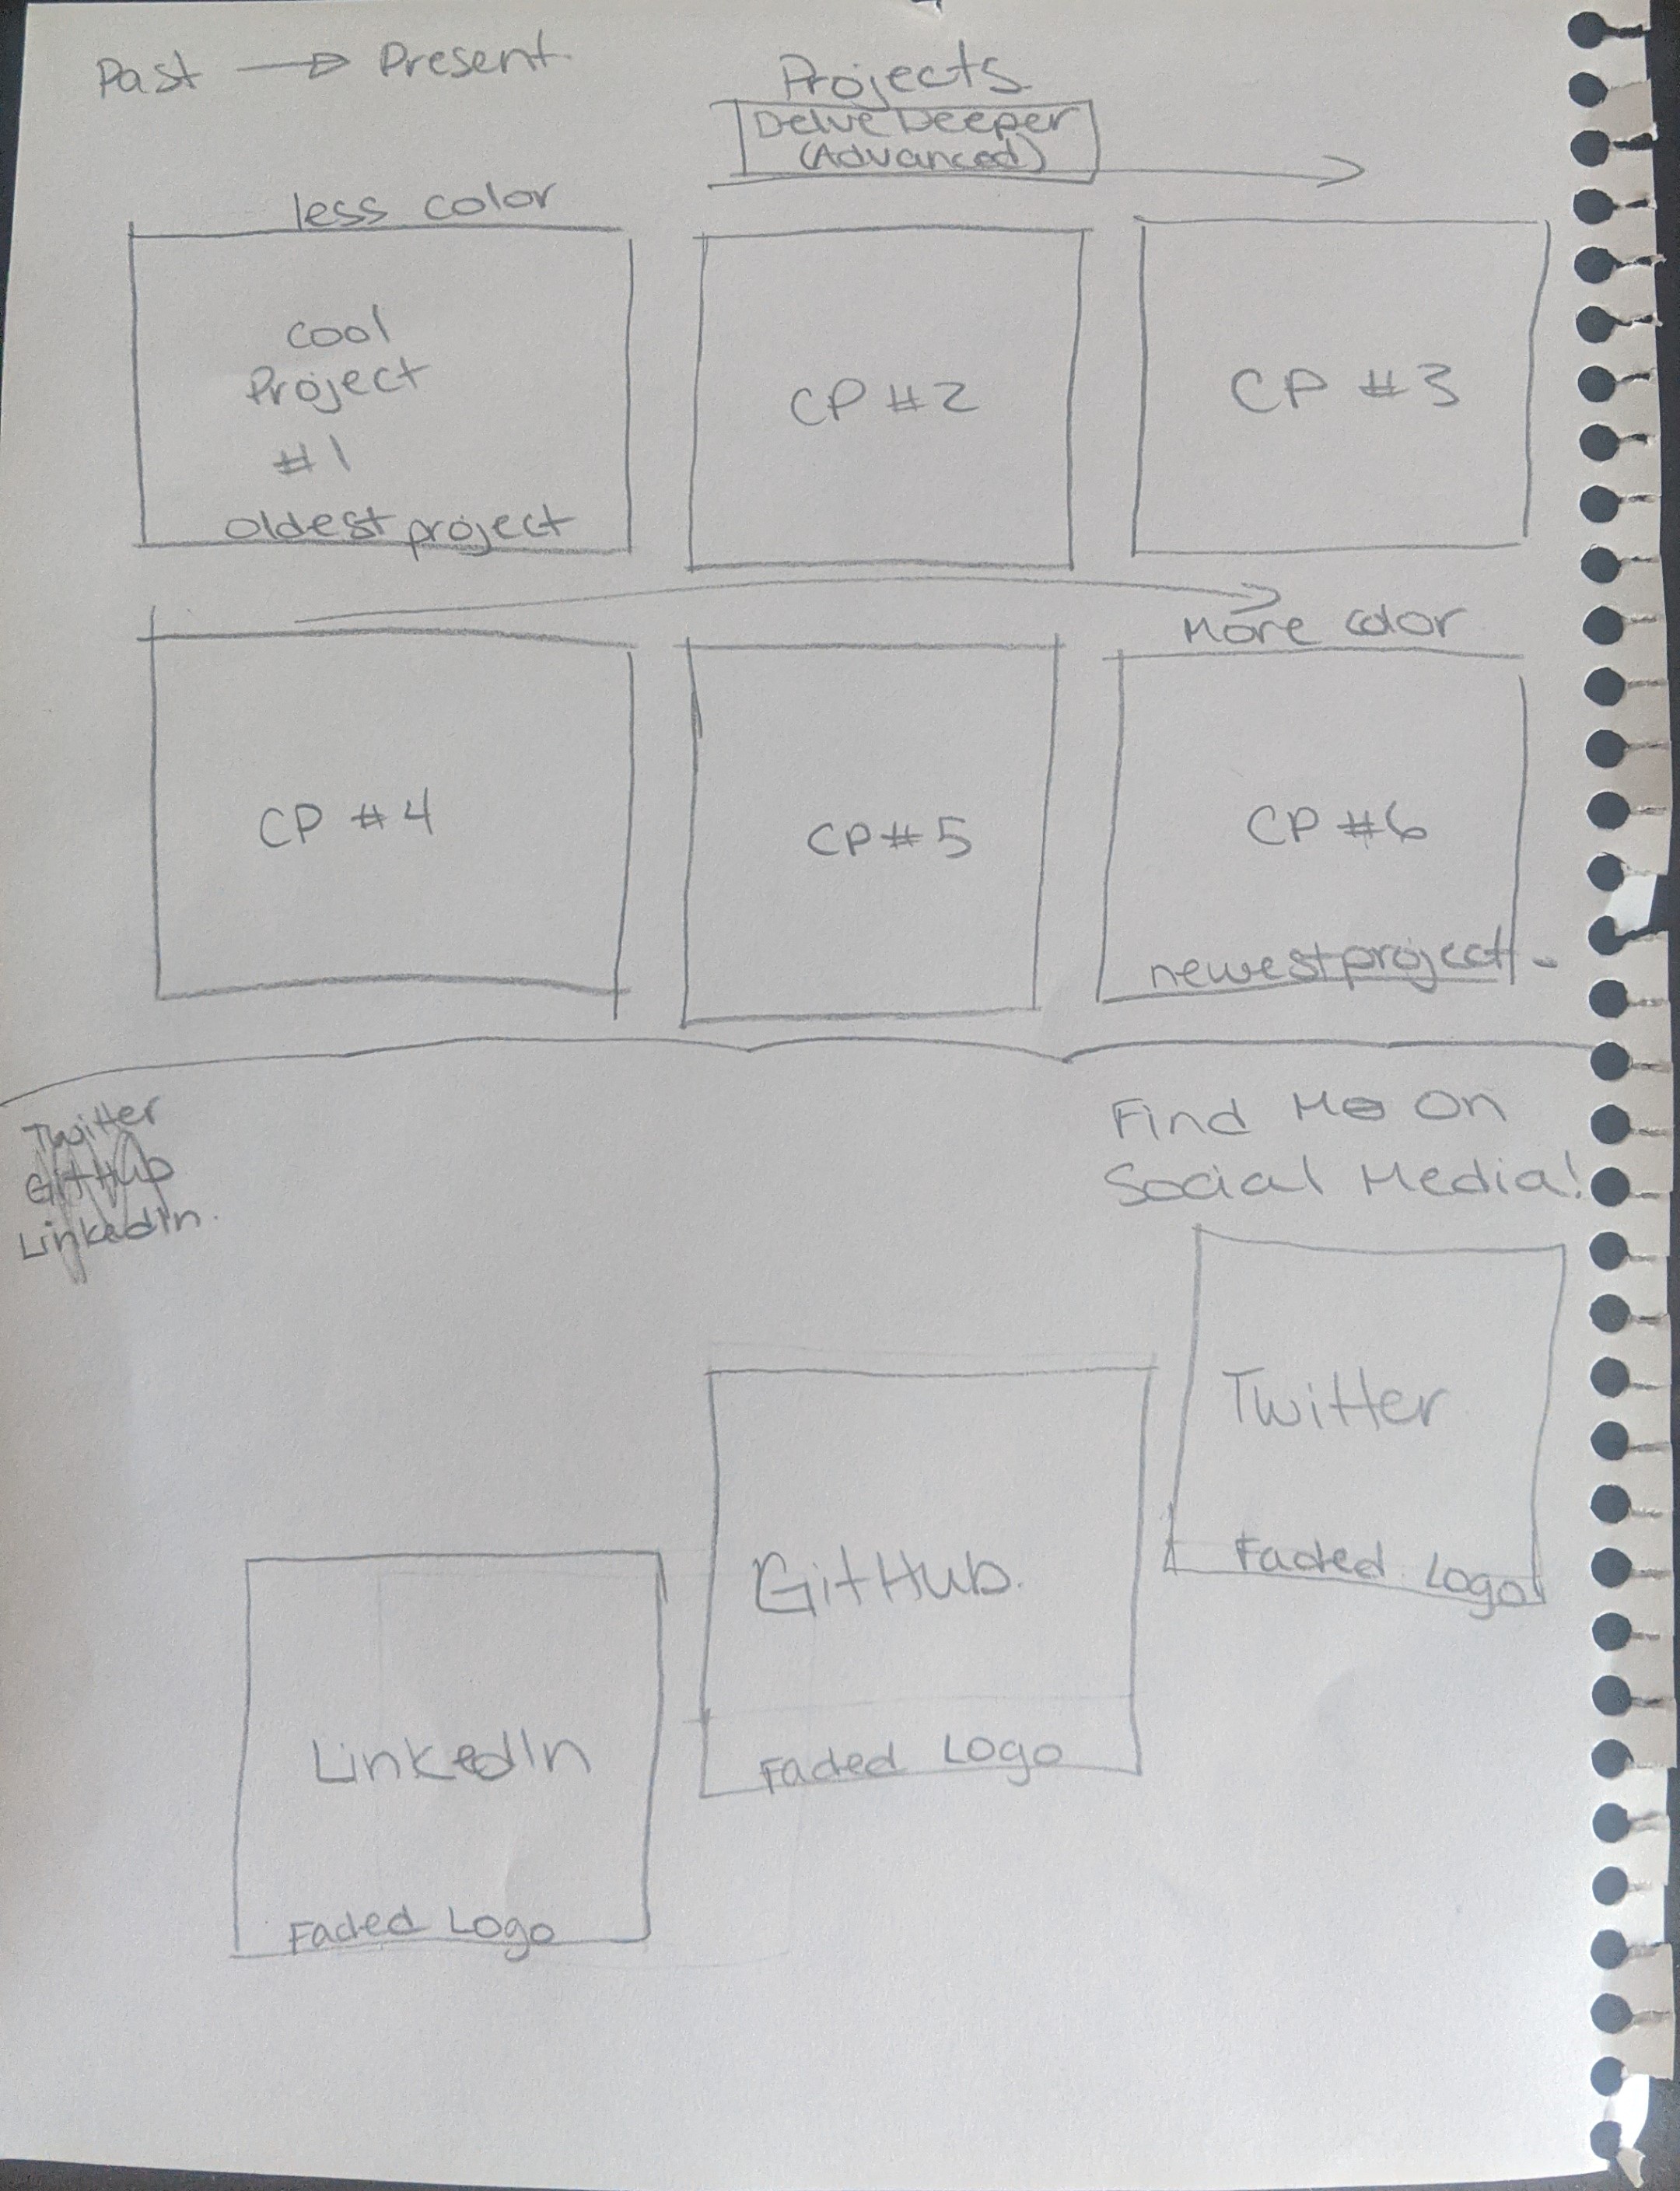 Past → Present
Projects
Delve Deeper
(Advanced)
less color
Cool
Project
#1
oldest project
CP #2
CP #3
More color
CP #4
CP #5
CP #6
newest project
Twitter
GitHub
LinkedIn.
Find Me On
Social Media!
Twitter
Faded Logo
GitHub.
Faded Logo
LinkedIn
Faded Logo